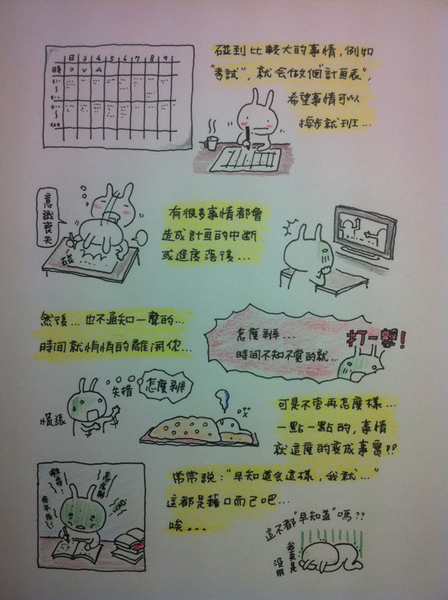 日 3 4 5 6 7 8 9
時
碰到比較大的事情,例如
"考試",就会做個"計画表",
希望事情可以
按步就班...
意識喪失
碰
有很多事情都會
造成計画的中断
或進度落後...
然後...也不通知一聲的...
時間就悄悄的離開你...
怎麼辦...
時間不知不覺的就...
打一擊!
慌張
失措
怎麼辦
可是不管再怎麼樣...
一點一點的,事情
就這麼的変成事實??
常常說:"早知道会這樣,我就..."
這都是藉口而已吧...
唉...
這不都"早知道"嗎??
我真是
沒用